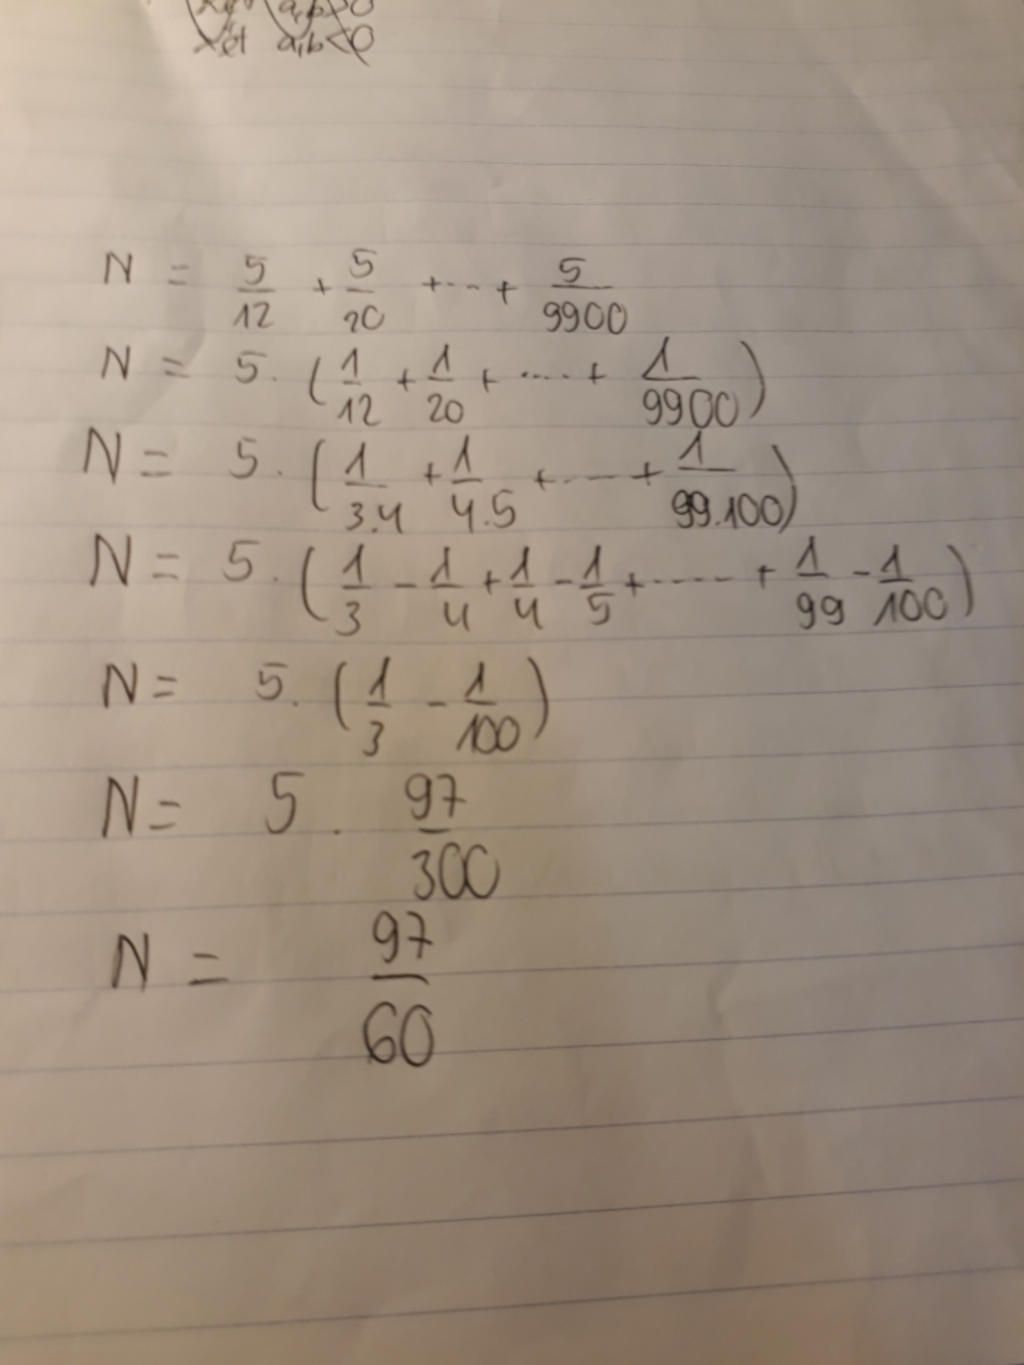 a,b>0
xét a,b<0
N = 5/12 + 5/20 +...+ 5/9900
N = 5. (1/12 + 1/20 + .... + 1/9900)
N = 5. (1/3.4 + 1/4.5 + ..... + 1/99.100)
N = 5. (1/3 - 1/4 + 1/4 - 1/5 + ..... + 1/99 - 1/100)
N = 5. (1/3 - 1/100)
N = 5 . 97/300
N = 97/60